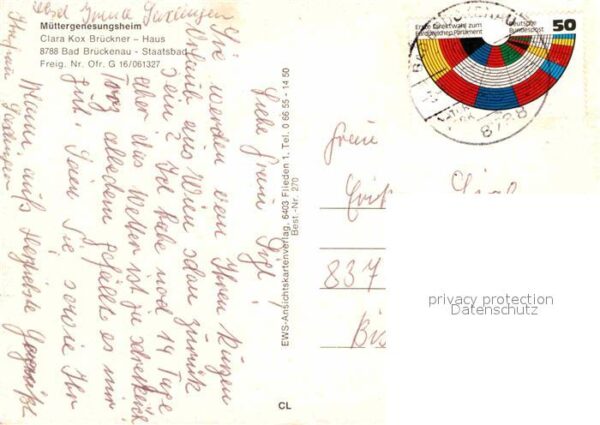 Müttergenesungsheim
Clara Kox Brückner – Haus
8788 Bad Brückenau - Staatsbad
Freig. Nr. Ofr. G 16/061327
Liebe Frau
Sie werden von Ihrem kurzen
Urlaub aus Wien schon zurück
sein? Ich habe noch 14 Tage
aber das Wetter ist zu schrecklich
Trotz alledem gefällt es mir
gut. Seien Sie sowie Ihr
Mann aufs herzlichste gegrüßt
EWS-Ansichtskartenverlag, 6403 Flieden 1, Tel. 0 66 55 - 14 50
Best.-Nr. 270
CL
Erste Direktwahl zum
Europäischen Parlament
Deutsche
Bundespost
50
8788
Frau
837
privacy protection
Datenschutz